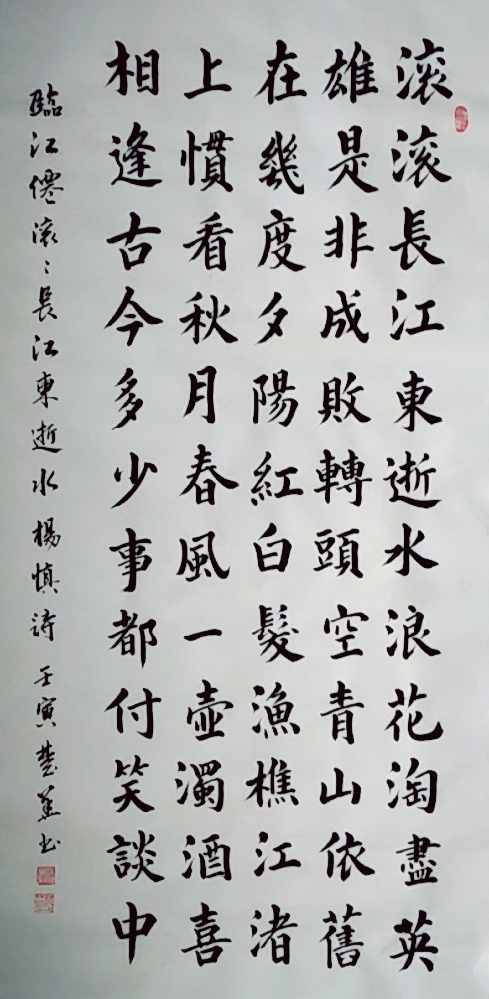 滚滚長江東逝水浪花淘盡英
雄是非成敗轉頭空青山依舊
在幾度夕陽紅白髮漁樵江渚
上慣看秋月春風一壺濁酒喜
相逢古今多少事都付笑談中
臨江僊滚〻長江東逝水楊慎詩壬寅書